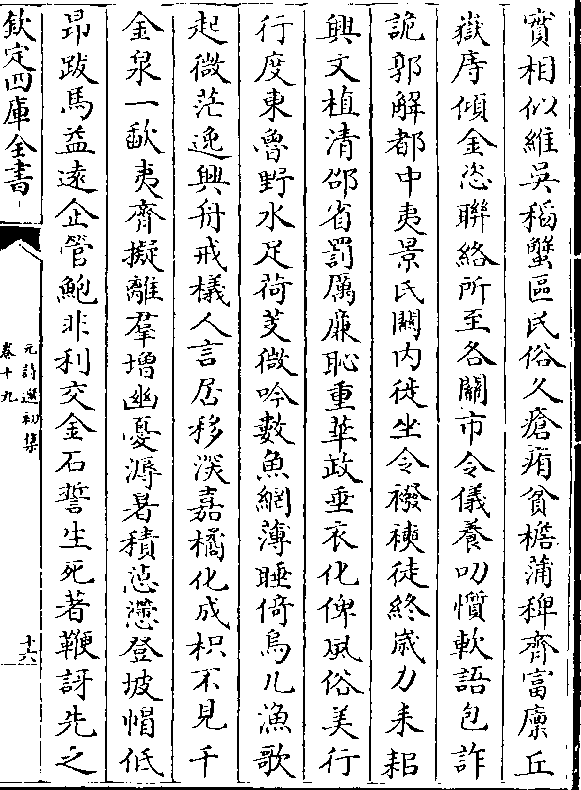 實相似維吳稻蟹區民俗久瘡痏貧樵蒲稗齊富廪丘
嶽庤傾金恣聯絡所至各關市令儀養叨懫軟語包詐
詭郭解都中夷景氏關内徙坐令襏襫徒終歲力耒耜
興文植清邵省罰厲亷恥重華政垂衣化俾風俗美行
行度東魯野水足荷芰微吟數魚網薄睡倚烏几漁歌
起微茫逸興舟戒檥人言居移淏嘉橘化成枳不見千
金泉一歃夷齊擬離羣增幽憂溽暑積惉懘登坡帽低
昂跋馬益逺企管鮑非利交金石誓生死著鞭訝先之
欽定四庫全書
元詩選初集
卷十九
十六